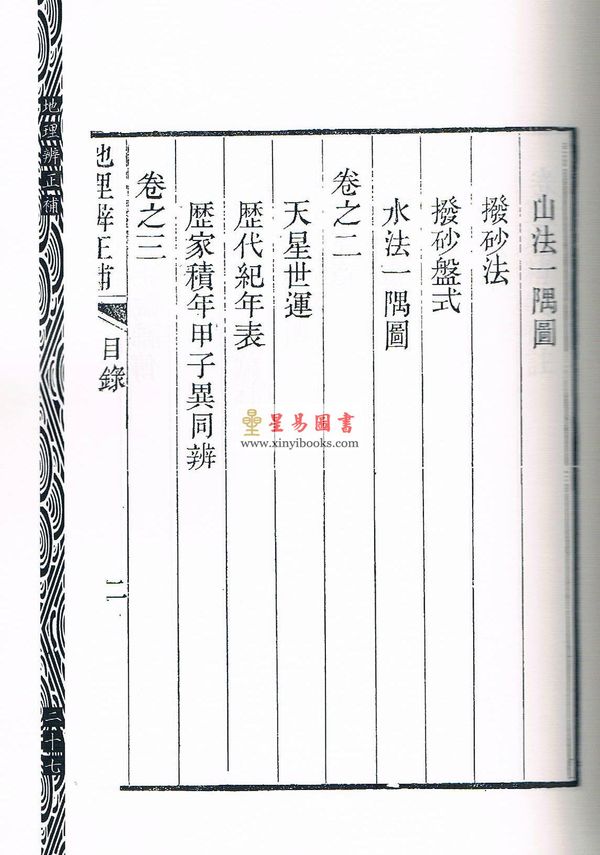 山法一隅圖
撥砂法
撥砂盤式
水法一隅圖
卷之二
天星世運
歷代紀年表
歷家積年甲子異同辨
卷之三
地理辨正補
目錄
二
地理辨正補
二十七
星易圖書
www.xinyibooks.com